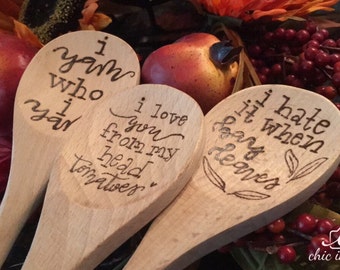 i
yam
who
i
yam
i love
you
from my
head
tomatoes
i hate
it when
bay
leaves
chic i